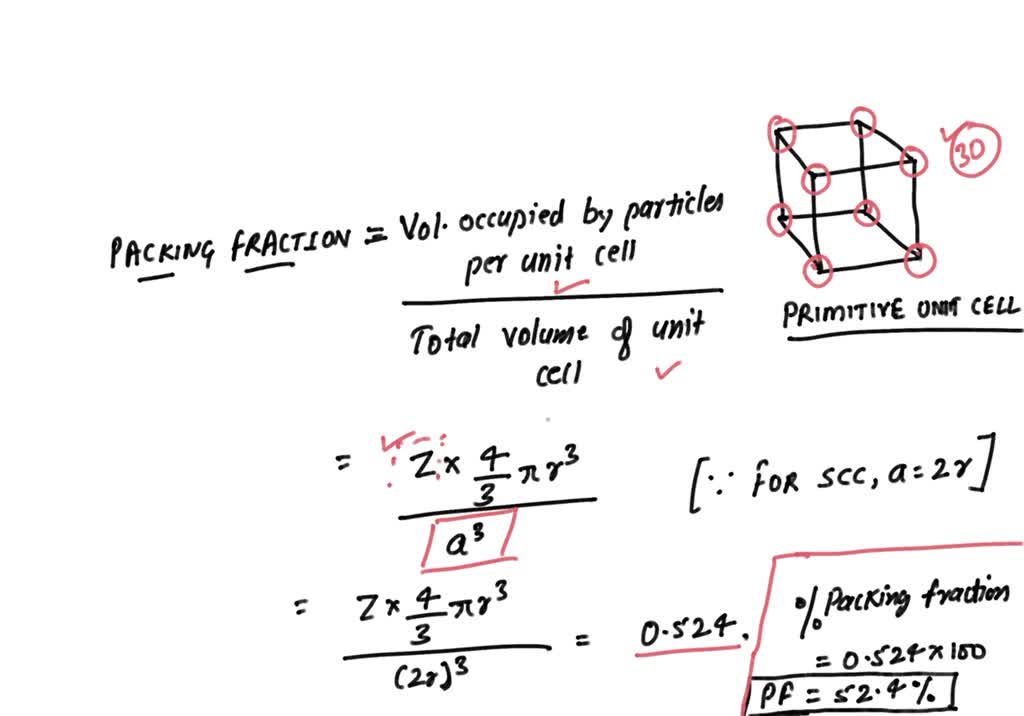 PACKING FRACTION = Vol. occupied by particles
per unit cell
Total volume of unit
cell
3D
PRIMITIVE UNIT CELL
= Z × 4/3 πr³
a³
[∵ FOR SCC, a = 2r]
= Z × 4/3 πr³ = 0.524.
(2r)³
% Packing fraction
= 0.524 × 100
PF = 52.4%